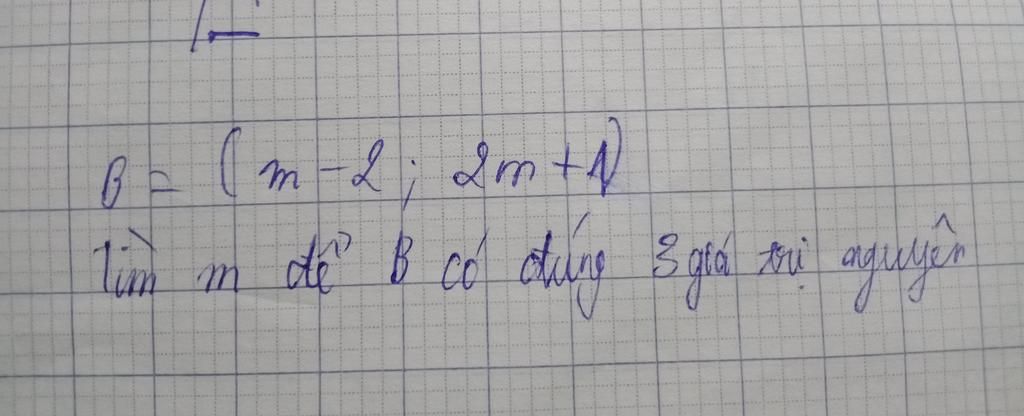 B = (m - 2 ; 2m + 1)
Tìm m để B có đúng 3 giá trị nguyên